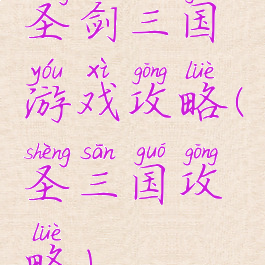 圣剑三国
yóu xì gōng lüè
游戏攻略(
shèng sān guó gōng
圣三国攻
lüè
略)